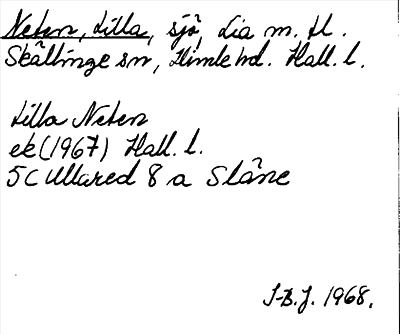 Neten, Lilla, sjö, Lia m. fl.
Skällinge sn, Himle hd. Hall. l.
Lilla Neten
ek (1967) Hall. l.
5C Ullared 8 a Slåne
I-B.J. 1968.